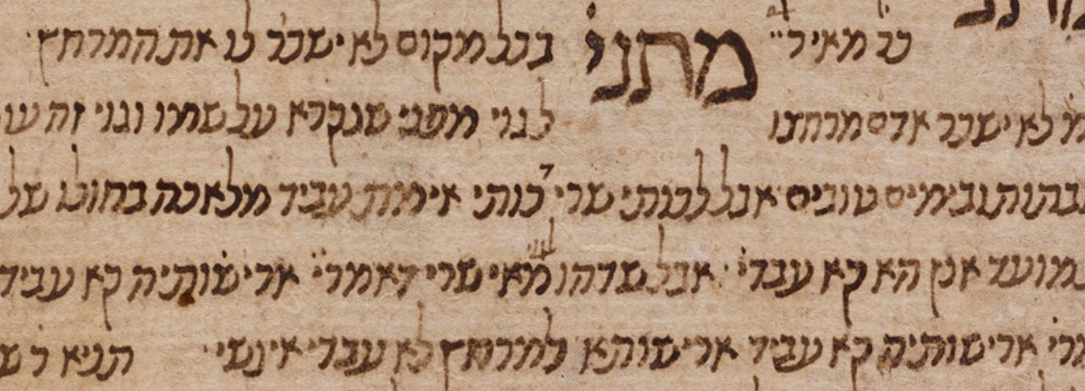 רב מאיר מתני בכל מקום לא ישכר לו את המרחץ
לא ישכר אדם מרחצו לגוי מפני שנקרא על שמו וגוי זה
ובימים טובים אבל שרי כותי עביד מלאכה בחולו של
אנן הא קא עבדי' אבל שדהו מאי שרי דאמרי' ארישותיה קא עביד
ארישותיה קא עביד ארישותא למרחץ לא עבדי אינשי תניא ר